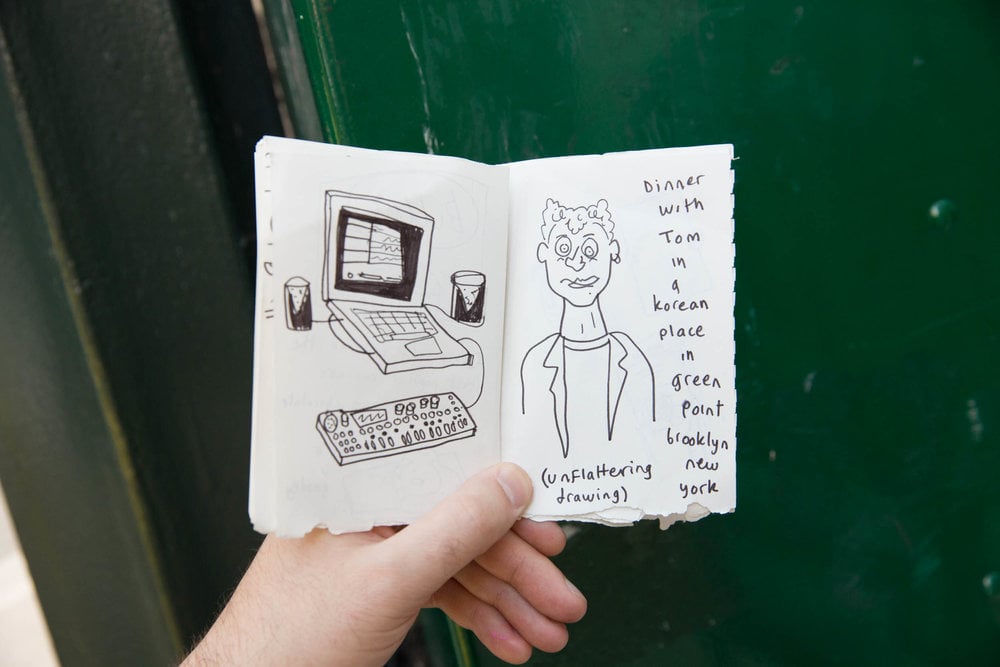 Dinner
with
Tom
in
a
korean
place
in
green
point
brooklyn
new
york
(unflattering
drawing)